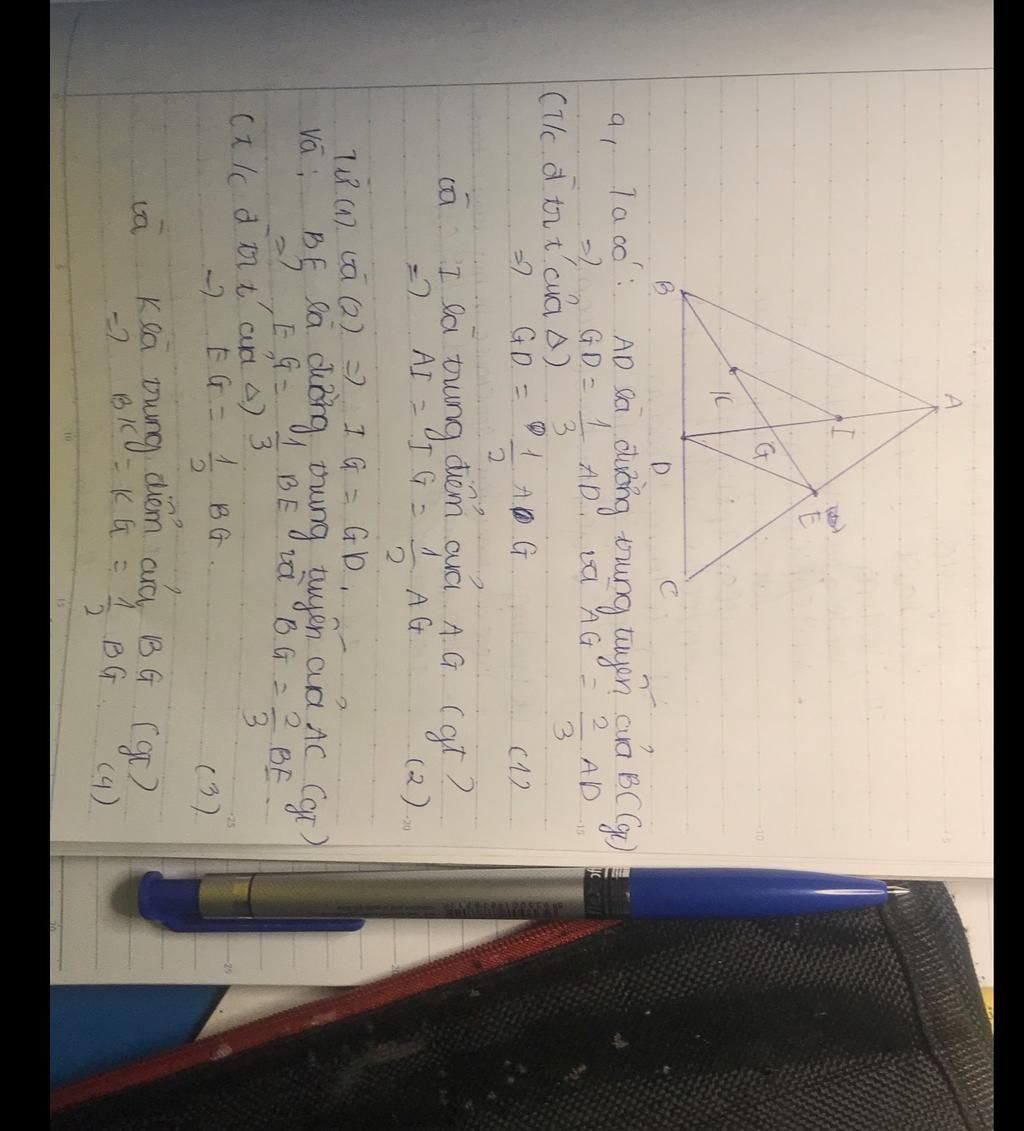 A
I
G
E
K
B
D
C
a, Ta có: AD là đường trung tuyến của BC (gt)
=> GD = 1/3 AD. và AG = 2/3 AD
(T/c đ tr t' của Δ)
=> GD = 1/2 AG (1)
và I là trung điểm của AG (gt)
=> AI = IG = 1/2 AG (2)
Từ (1) và (2) => IG = GD.
Và: BE là đường trung tuyến của AC (gt)
=> EG = 1/3 BE và BG = 2/3 BE.
(T/c đ tr t' của Δ)
=> EG = 1/2 BG. (3)
và K là trung điểm của BG (gt)
=> BK = KG = 1/2 BG. (4)